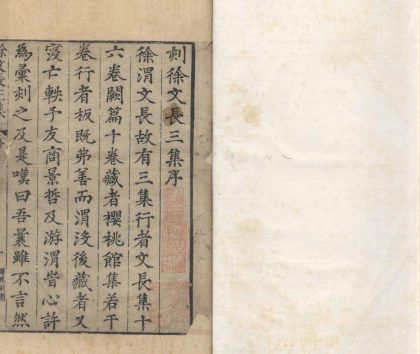 刻徐文長三集序
徐渭文長故有三集行者文長集十
六卷闕篇十卷藏者櫻桃館集若干
卷行者板既弗善而渭沒後藏者又
寖亡軼予友商景哲及游渭昔心許
為彙刻之及是嘆曰吾曩雖不言然
徐文長三集